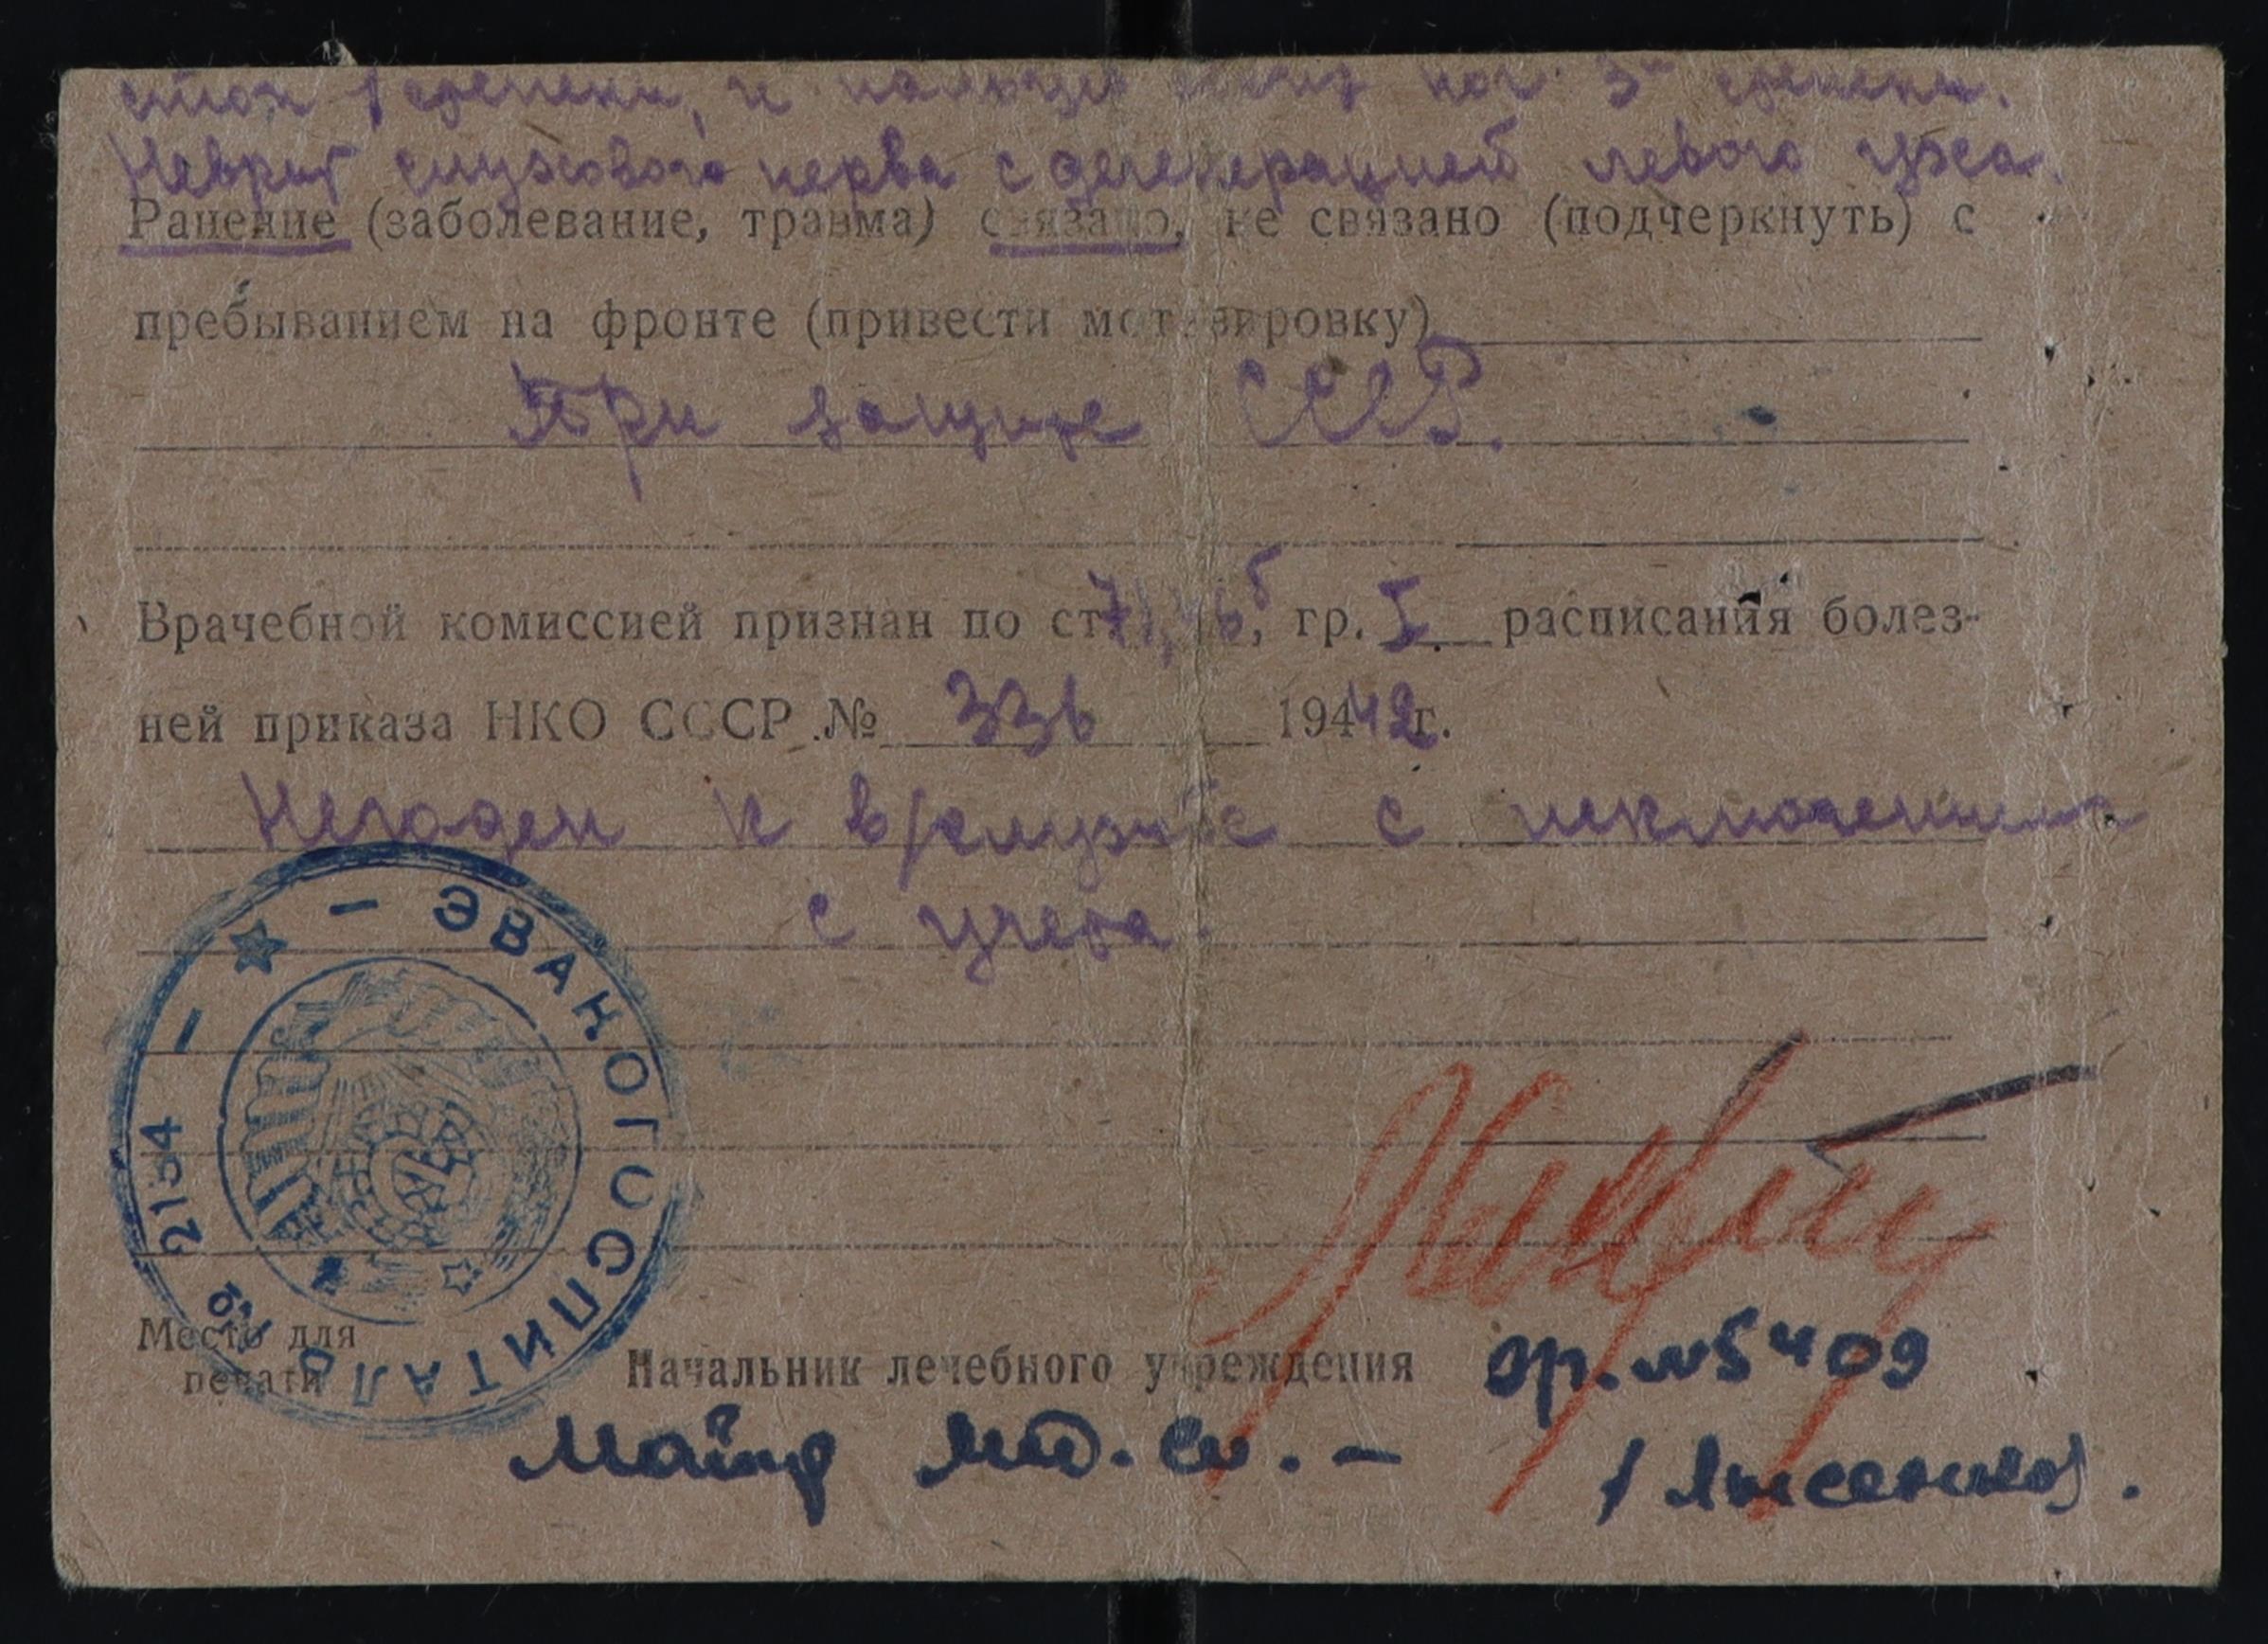 стоп 1 степени, и пальцев обеих ног 3й степени.
Неврит слухового нерва с дегенерацией левого уха.
Ранение (заболевание, травма) связано, не связано (подчеркнуть) с
пребыванием на фронте (привести мотивировку)
При защите СССР.
Врачебной комиссией признан по ст 71, б, гр. I расписания болез-
ней приказа НКО СССР № 336 194 42 г.
Негоден к в/службе с исключением
с учета.
ЭВАКОГОСПИТАЛЬ № 2154
Место для
печати
Начальник лечебного учреждения
вр. №5409
Майор мед. сл. –
/Лысенко/.